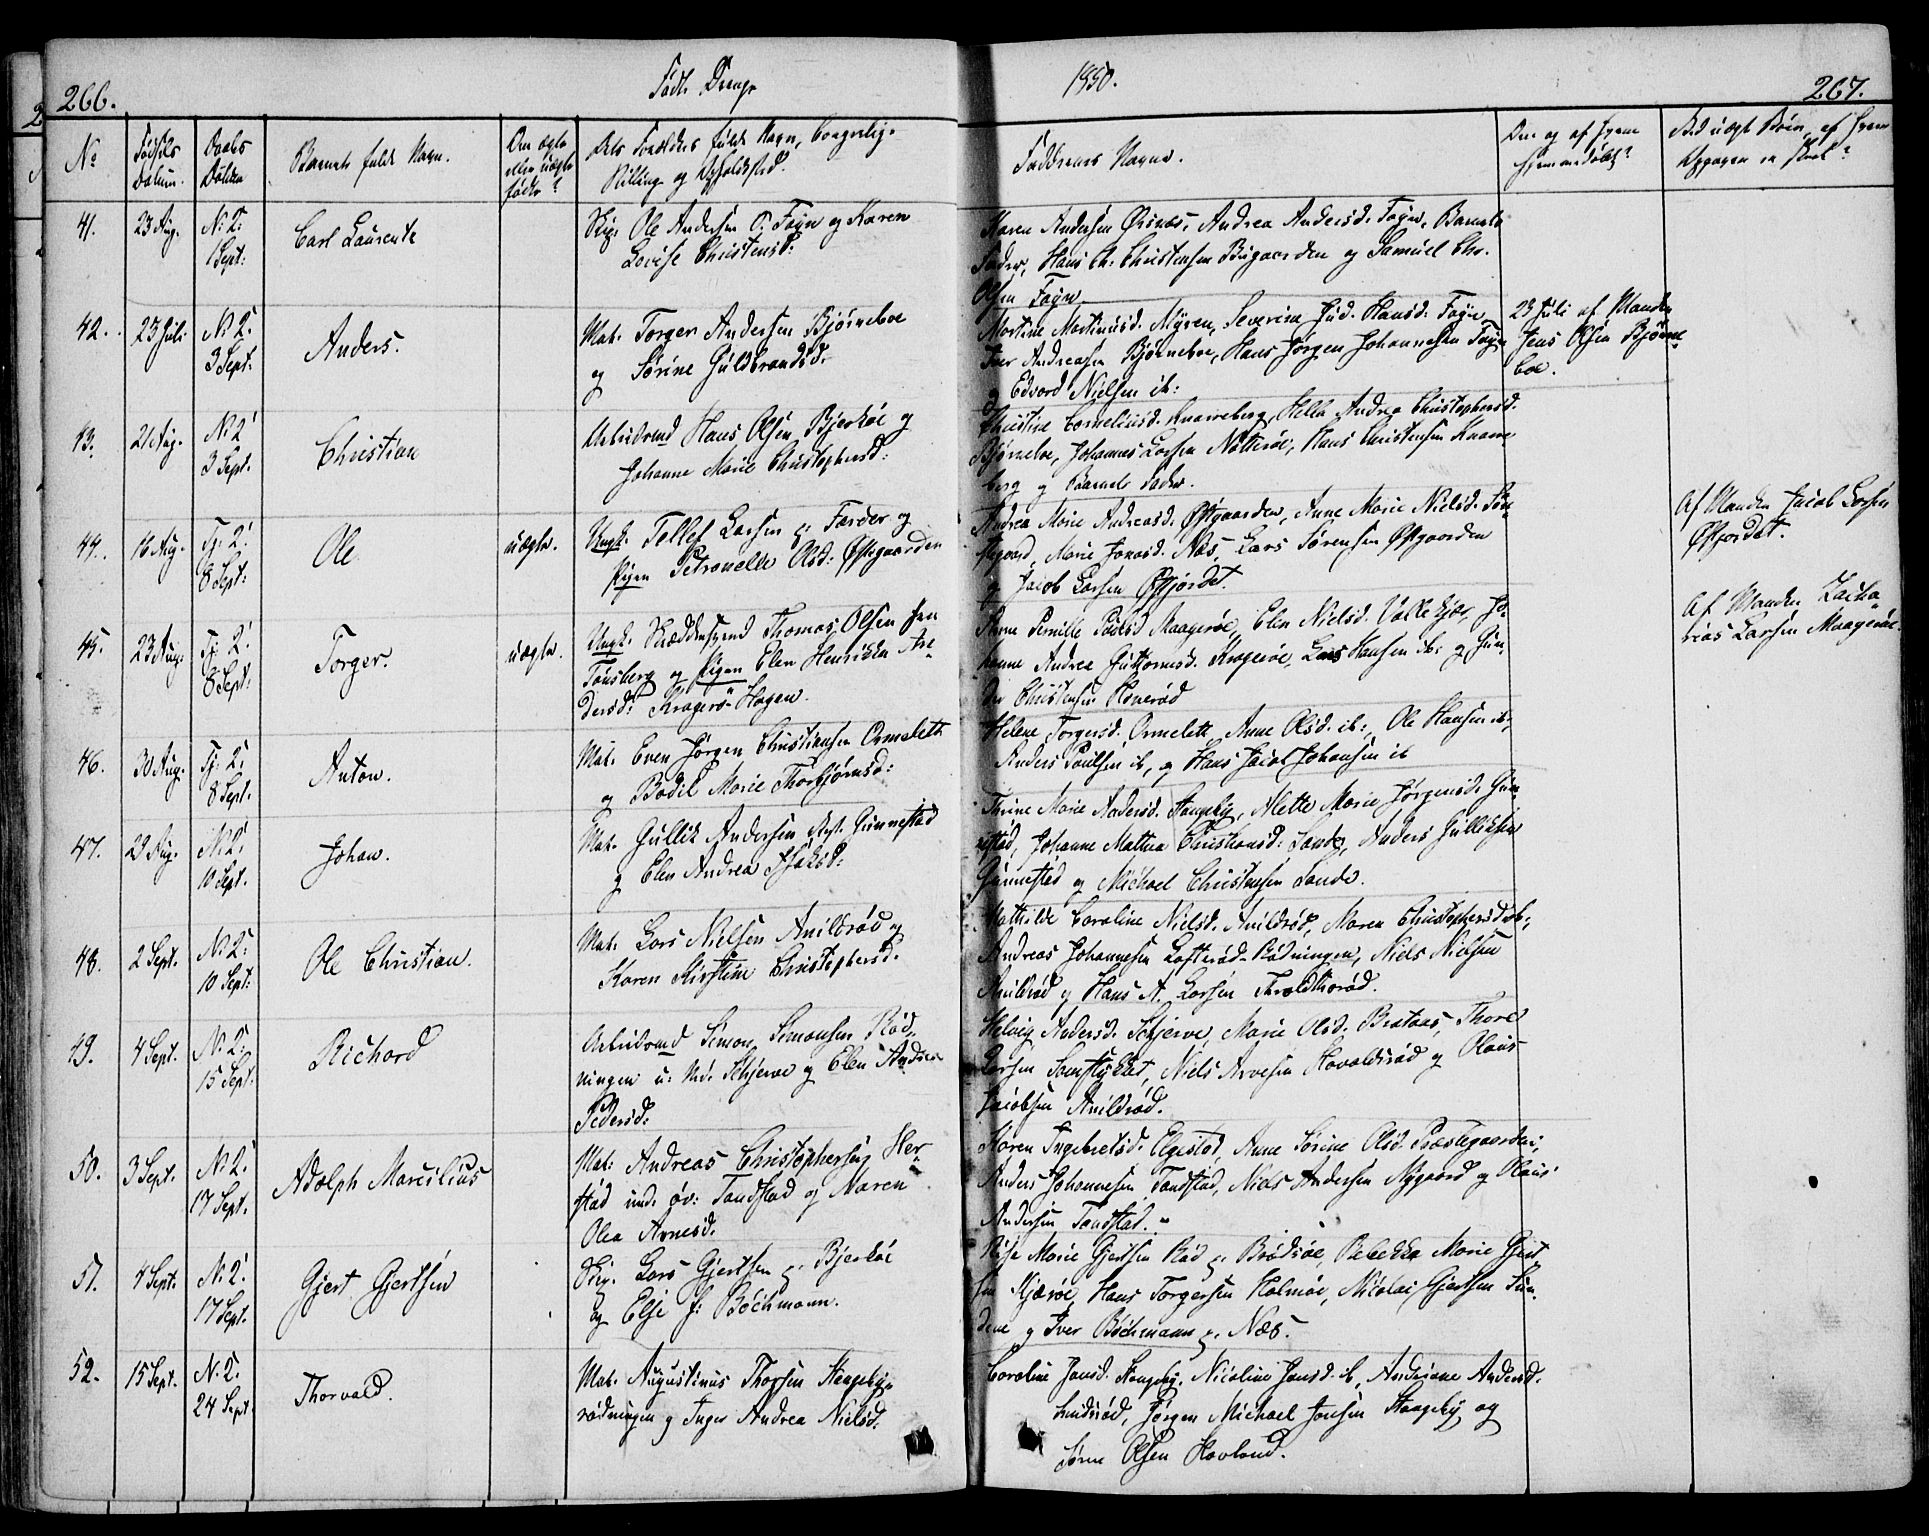 266.
Fødte Drenge
1850.
267.
No
Fødsels
Datum.
Daabs
Datum
Barnets fulde Navn.
Om ægte
eller uægte
født?
Dets Forældres fulde Navn, borgerlig
Stilling og Opholdssted.
Faddernes Navne.
Om og af hvem
hjemmedøbt?
Ved uægte Børn, af hvem
41.
23 Aug.
N: 2:
1 Sept:
Carl Laurentz
Ole Andersen Føyn og Karen
Lovise Christensd:
Karen Andersen Ørsnæs, Andrea Andersd. Føyn, Barnets
Fader, Hans Ch. Christensen Bugaarden og Samuel Chr.
Olsen Føyn.
42.
23 Juli
N: 2:
3 Sept:
Anders.
Mat. Torger Andersen Bjørneboe
og Sørine Guldbrandsd.
Martine Martinusd. Myren, Severine Jud. Hansd. Føyn,
Iver Andreasen Bjørneboe, Hans Jørgen Johannesen Føyn
og Edvard Nielsen ib:
23 Juli af Manden
Jens Olsen Bjørne
boe.
43.
21 Aug.
N: 2:
3 Sept.
Christian
Arbeidsmd Hans Olsen Bjerkøe og
Johanne Marie Christophersd:
Christine Corneliusd. Knarreberg, Helle Andrea Christophersd.
Bjørneboe, Johannes Larsen Nøtterøe, Hans Christensen Knarre
berg og Barnets Fader.
44.
16 Aug.
Tj: 2:
8 Sept:
Ole
uægte.
Ungk: Tellef Larsen p: Færder og
Pigen Petronelle Olsd: Østgaarden
Andrea Marie Andreasd. Østgaarden, Anne Marie Nielsd.
Marie Jonasd. Næs, Lars Sørensen Østgaarden
og Jacob Larsen Øfjordet.
Af Manden Jacob Larsen
Øfjordet.
45.
23 Aug.
Tj: 2:
8 Sept:
Torger.
uægte.
Ungk: Thomas Olsen
Tønsberg og Pigen Elen Henrikka An
dersd: Kragerø Hagen.
Anne Pernille Maagerøe, Elen Nielsd. Vallekjær, Jo
hanne Andrea Guttormsd. Kragerøe, Lars Hansen ib: og Gun
der Christensen
Af Manden Zacha
rias Larsen Maagerøe.
46.
30 Aug.
Tj: 2:
8 Sept.
Anton.
Mat. Even Jørgen Christiansen Ormelett
og Bodil Marie Thorbjørnsd:
Helene Torgersd. Ormelett, Anne Olsd. ib:, Ole Hansen ib,
Anders Poulsen ib, og Hans Jacob Johansen ib
47.
29 Aug.
N: 2:
10 Sept.
Johan.
Mat. Gullik Andersen Gunnestad
og Elen Andrea
Thrine Marie Andersd. Stangeby, Mette Marie Jørgensd. Gun
nestad, Johanne Mathea Christiansd: Sande, Anders Gulliksen
Gunnestad og Michael Christensen Sande.
48.
2 Sept.
N: 2:
10 Sept:
Ole Christian.
Mat. Lars Nielsen Arildrød og
Karen Kirstine Christophersd.
Mathilde Caroline Nielsd. Arildrød, Maren Christophersd. ib,
Andreas Johannesen Rødningen, Niels Nielsen
Arildrød og Hans A. Larsen
49.
4 Sept.
N: 2:
15 Sept.
Richard
Arbeidsmd Simon Simonsen Rød
ningen u: Nd. Skjerve og Elen Andrea
Pedersd:
Helvig Andersd. Skjerve, Marie Olsd. Brataas, Thore
Larsen Niels Arvesen Havaldsrød og Olaus
Jacobsen Arildrød.
50.
3 Sept.
N: 2:
17 Sept.
Adolph Marcilius
Mat: Andreas Christophersen Her
stad und. øv: Tandstad og Maren
Olea Arnesd.
Karen Ingebretsd. Elgestad, Anne Sørine Olsd. Præstegaarden,
Anders Johannesen Tandstad, Niels Andersen Nygaard og Olaus
Andersen Tandstad.
51.
4 Sept.
N: 2:
17 Sept.
Gjert Gjertsen
Lars Gjertsen p. Bjerkøe
og Else f: Bochmann.
Marie Gjertsen Rød p. Brødsøe, Rebekka Marie Gjert
sen Kjærøe, Hans Torgersen Holmøe, Nicolai Gjertsen Sun
dene og Iver Bochmann p. Næs.
52.
15 Sept.
N: 2.
24 Sept.
Thorvald.
Mat. Augustinus Thorsen Stangeby
rødningen og Inger Andrea Nielsd.
Caroline Jensd. Stangeby, Nicoline Jensd. ib, Andriane Andersd.
Jørgen Michael Jensen Stangeby og
Søren Olsen Havland.